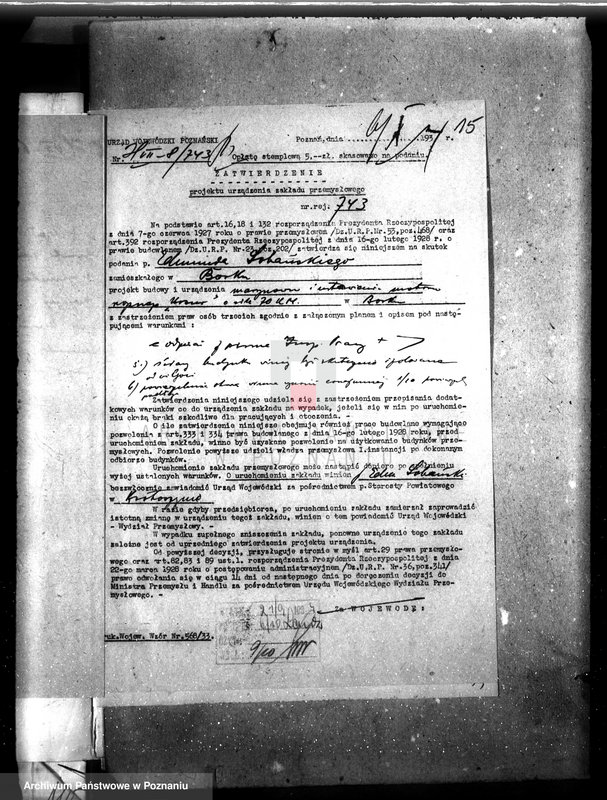 15
URZĄD WOJEWÓDZKI POZNAŃSKI
Poznań, dnia 193 r.
Nr. 743
Opłatę stemplową 5.--zł. skasowano na podaniu.
ZATWIERDZENIE
projektu urządzenia zakładu przemysłowego
nr.rej. 743
Na podstawie art.16,18 i 132 rozporządzenia Prezydenta Rzeczypospolitej
z dnia 7-go czerwca 1927 roku o prawie przemysłowem /Dz.U.R.P.Nr.53,poz.468/ oraz
art.392 rozporządzenia Prezydenta Rzeczypospolitej z dnia 16-go lutego 1928 r. o
prawie budowlanem /Dz.U.R.P. Nr.23,poz.202/ zatwierdza się niniejszem na skutek
podania p. Edmunda
zamieszkałego w Borku
projekt budowy i urządzenia i ustawienia
o sile 70 K.M. w Borku
z zastrzeżeniem praw osób trzecich zgodnie z załączonym planem i opisem pod nastę-
pującemi warunkami :
5.) ściany budynku
6)
Zatwierdzenia niniejszego udziela się z zastrzeżeniem przepisania dodat-
kowych warunków co do urządzenia zakładu na wypadek, jeżeli się w nim po uruchomie-
niu okażą braki szkodliwe dla pracujących i otoczenia. -
O ile zatwierdzenie niniejsze obejmuje również prace budowlane wymagające
pozwolenia z art.333 i 334 prawa budowlanego z dnia 16-go lutego 1928 roku, przed
uruchomieniem zakładu, winno być uzyskane pozwolenie na użytkowanie budynków prze-
mysłowych. Pozwolenie powyższe udzieli władza przemysłowa I. instancji po dokonanym
odbiorze budynków.
Uruchomienie zakładu przemysłowego może nastąpić dopiero po spełnieniu
wyżej ustalonych warunków. O uruchomieniu zakładu winien
bezzwłocznie zawiadomić Urząd Wojewódzki za pośrednictwem p. Starosty Powiatowego
w Krotoszynie
W razie gdyby przedsiębiorca, po uruchomieniu zakładu zamierzał zaprowadzić
istotną zmianę w urządzeniu tegoż zakładu, winien o tem powiadomić Urząd Wojewódzki
- Wydział Przemysłowy. -
W wypadku zupełnego zniszczenia zakładu, ponowne urządzenie tego zakładu
zależne jest od uprzedniego zatwierdzenia projektu urządzenia.
Od powyższej decyzji, przysługuje stronie w myśl art.29 prawa przemysło-
wego oraz art.82,83 i 89 ust.1. rozporządzenia Prezydenta Rzeczypospolitej z dnia
22-go marca 1928 roku o postępowaniu administracyjnem /Dz.U.R.P. Nr.36,poz.341/
prawo odwołania się w ciągu 14 dni od następnego dnia po doręczeniu decyzji do
Ministra Przemysłu i Handlu za pośrednictwem Urzędu Wojewódzkiego Wydziału Prze-
mysłowego. -
Za WOJEWODĘ:
9/10
ruk.Wojew. Wzór Nr.568/33.
Archiwum Państwowe w Poznaniu